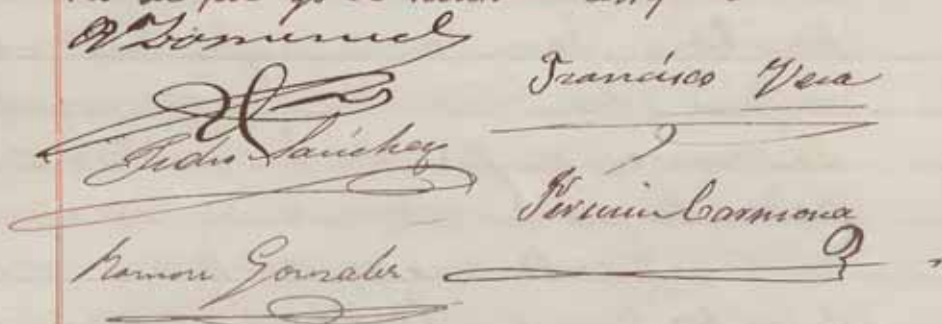 Domenech
Francisco Vera
Pedro Sanchez
Fermin Carmona
Ramon Gonzalez